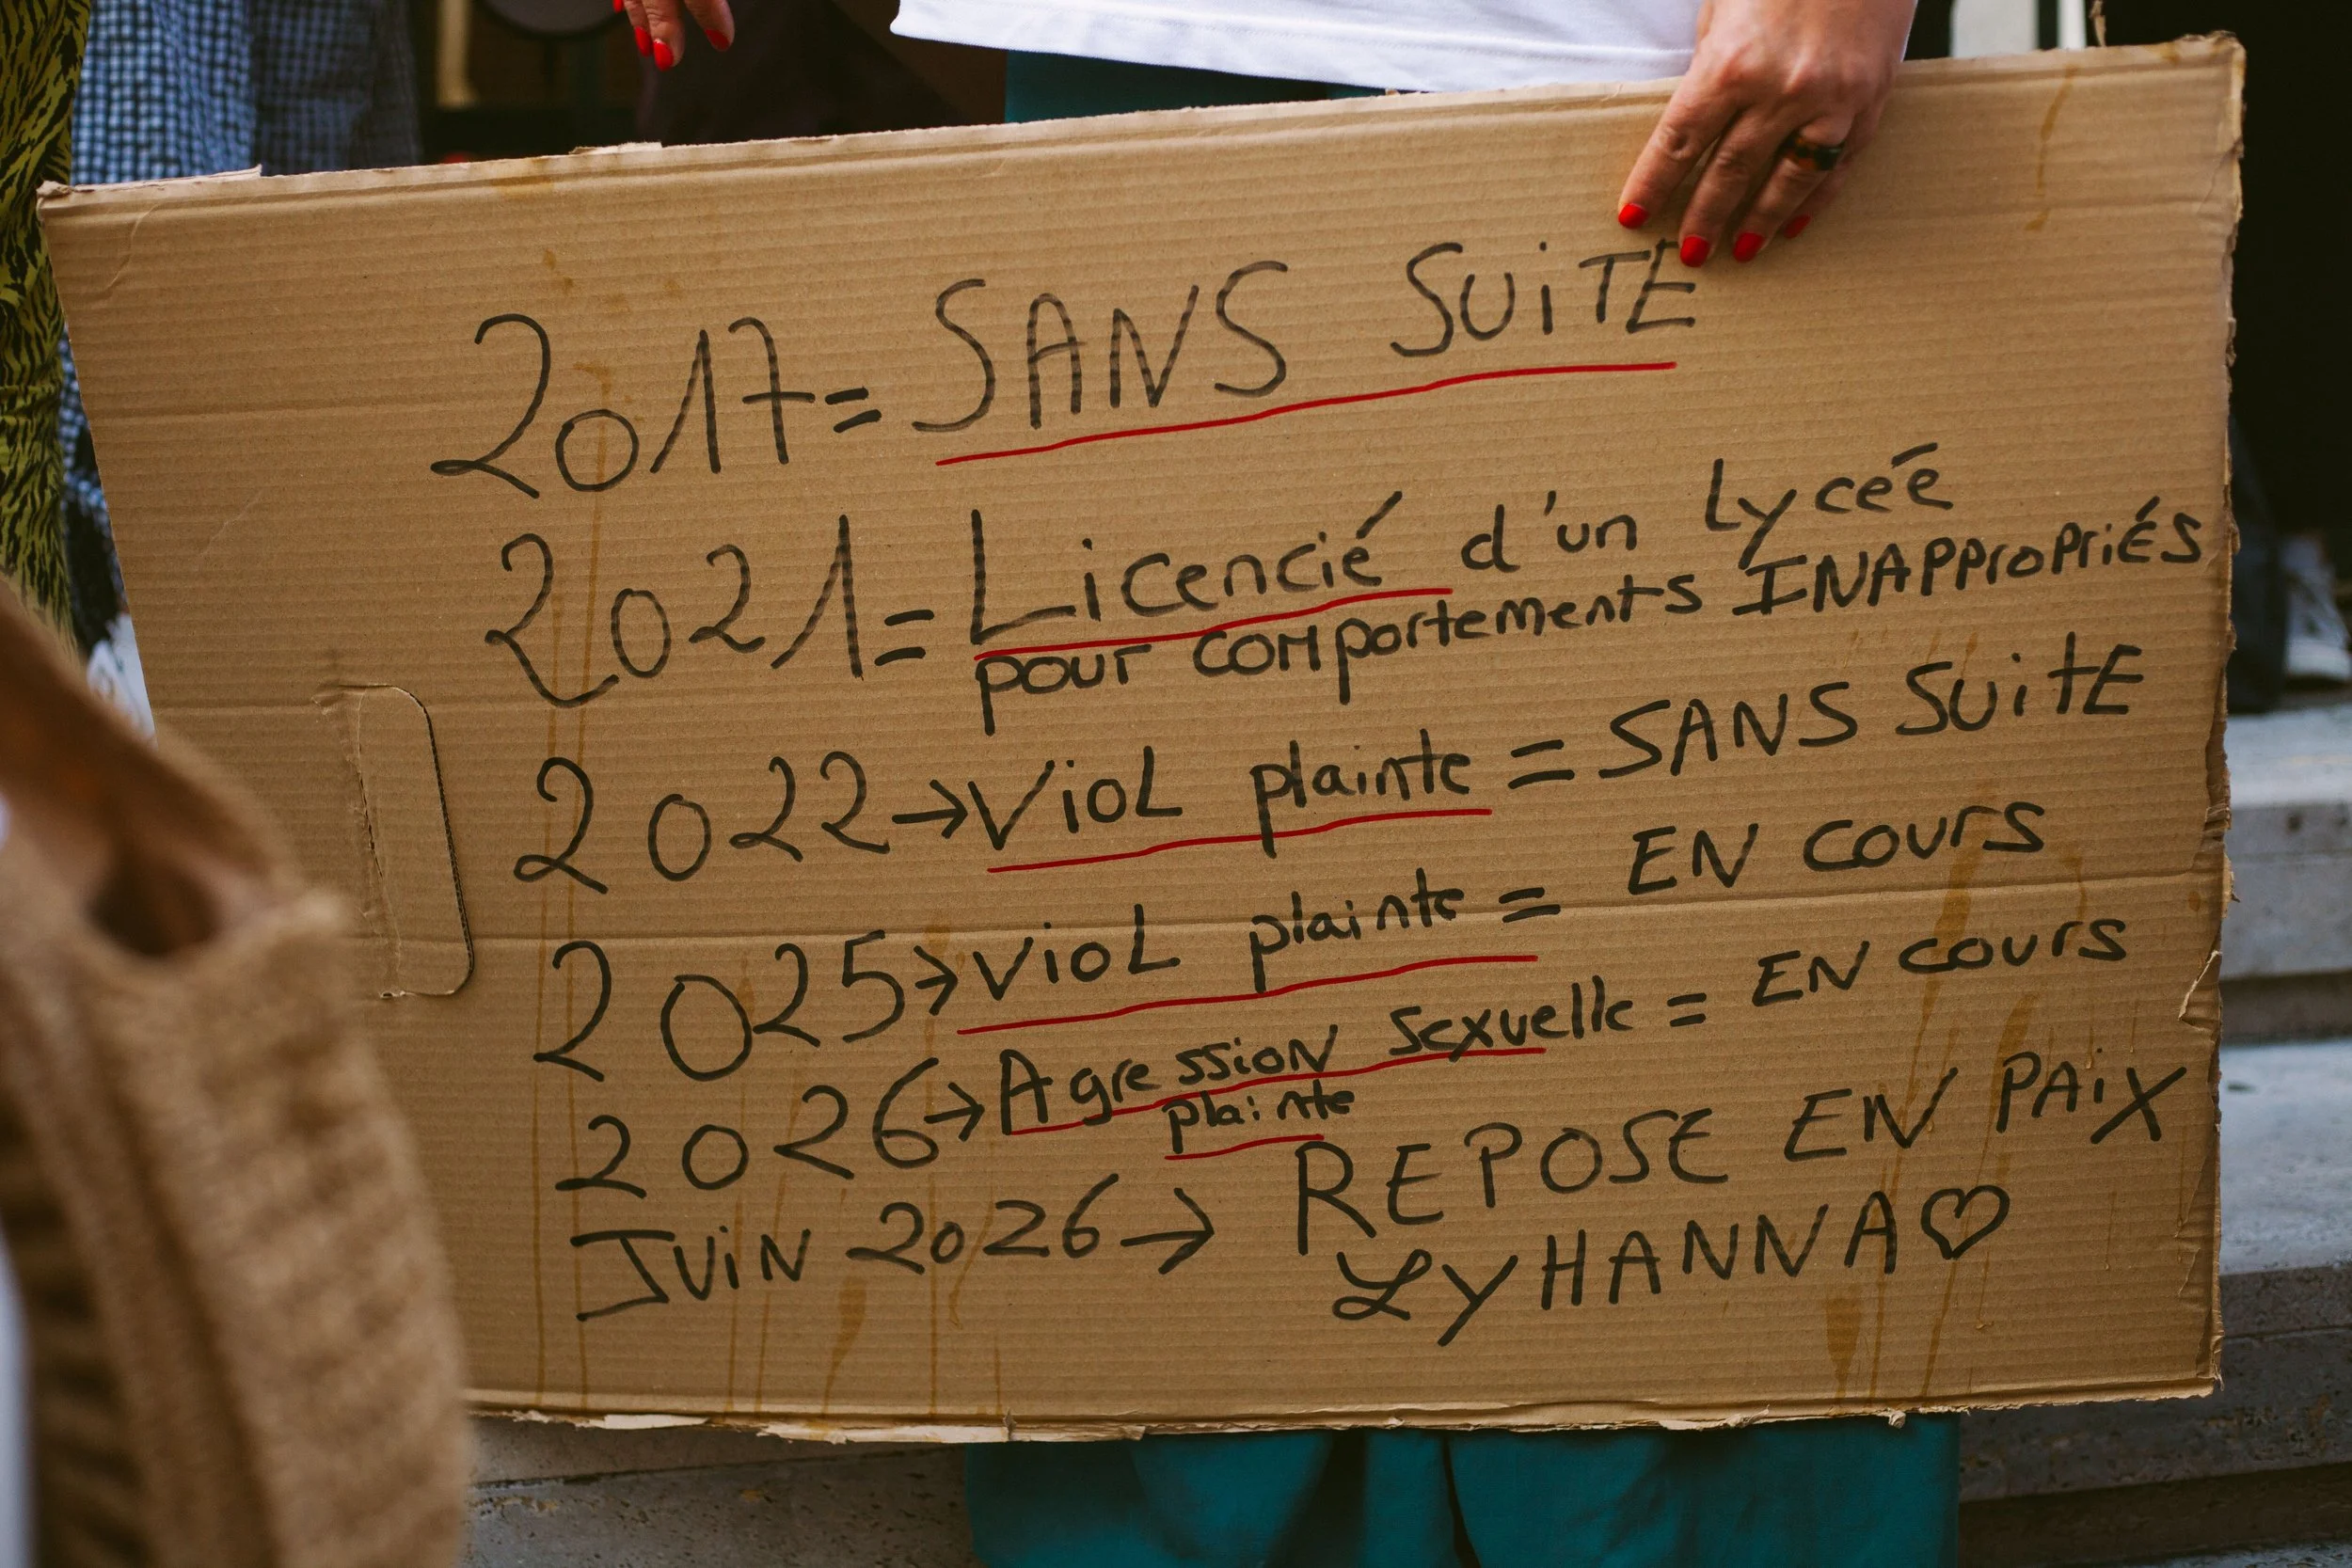 2017 = SANS SUiTE
2021 = Licencié d'un Lycéé
pour comportements INAppropriÉs
2022 → VioL plainte = SANS SuitE
2025 → VioL plainte = EN cours
2026 → Agression Sexuelle = EN cours
plainte
JUiN 2026 → REPOSE EN PAiX
LyHANNA ♡